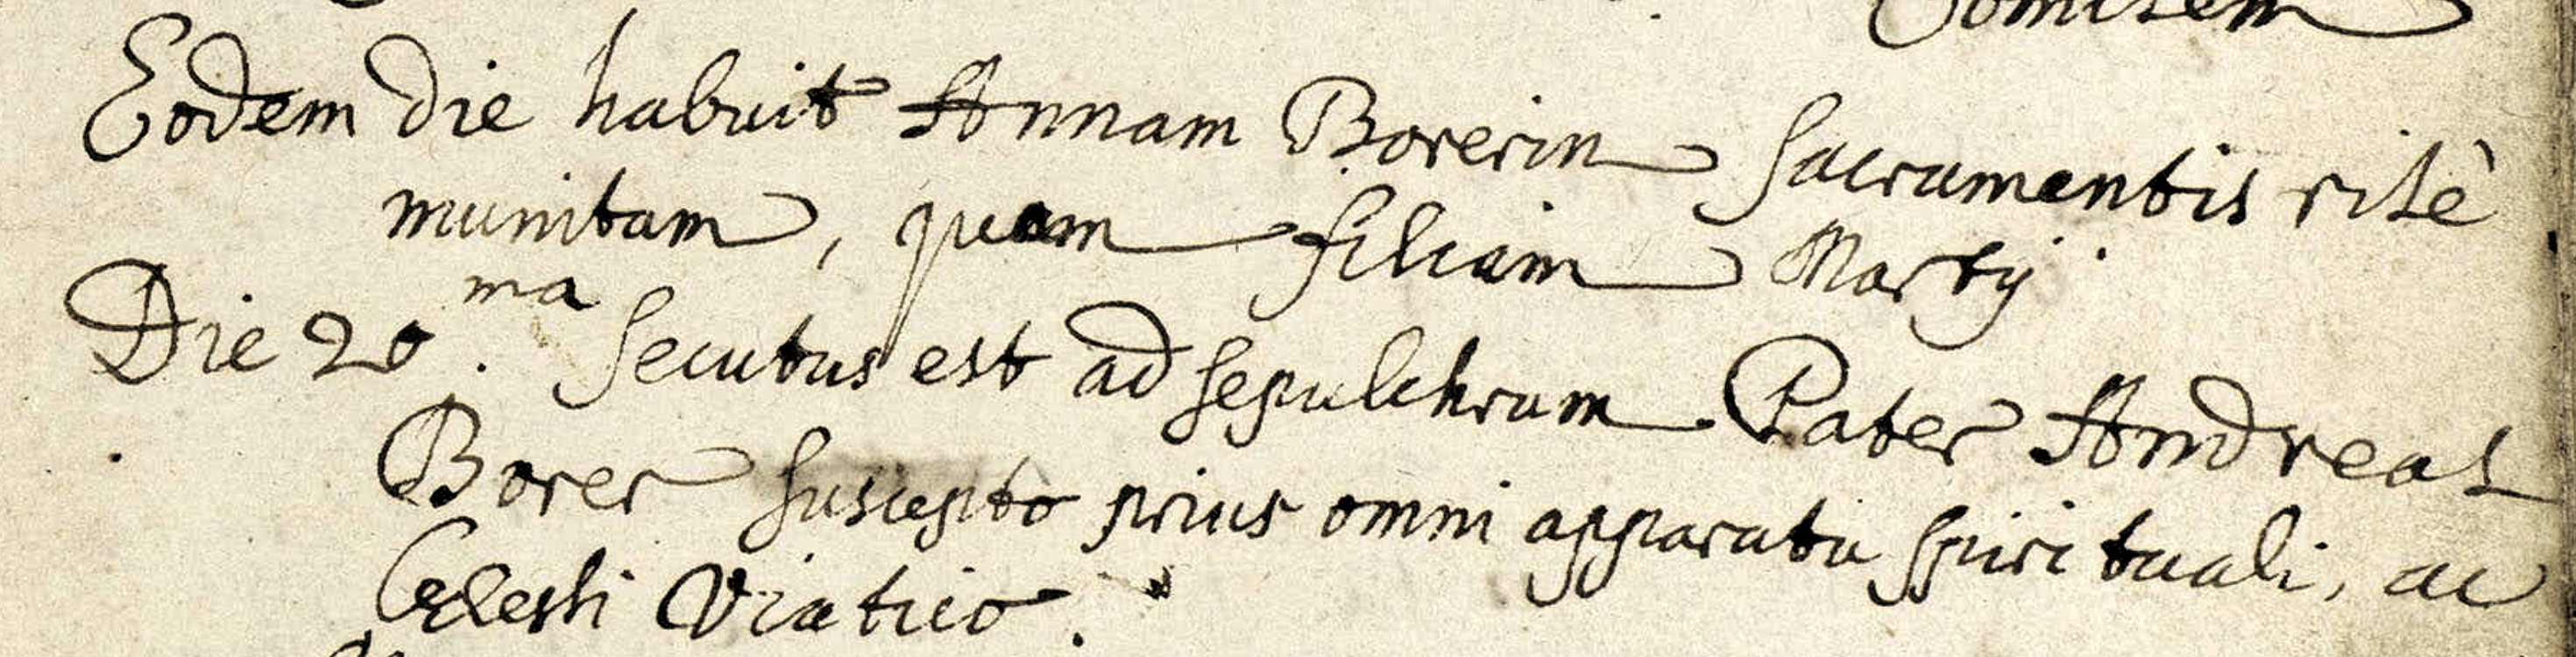 Comitem
Eodem die habuit Annam Borerin Sacramentis ritè
munitam, quam filiam Martÿ.
Die 20ma. Secutus est ad sepulchrum Pater Andreas
Borer suscepto prius omni apparatu spirituali, ac
Cœlesti Viatico.